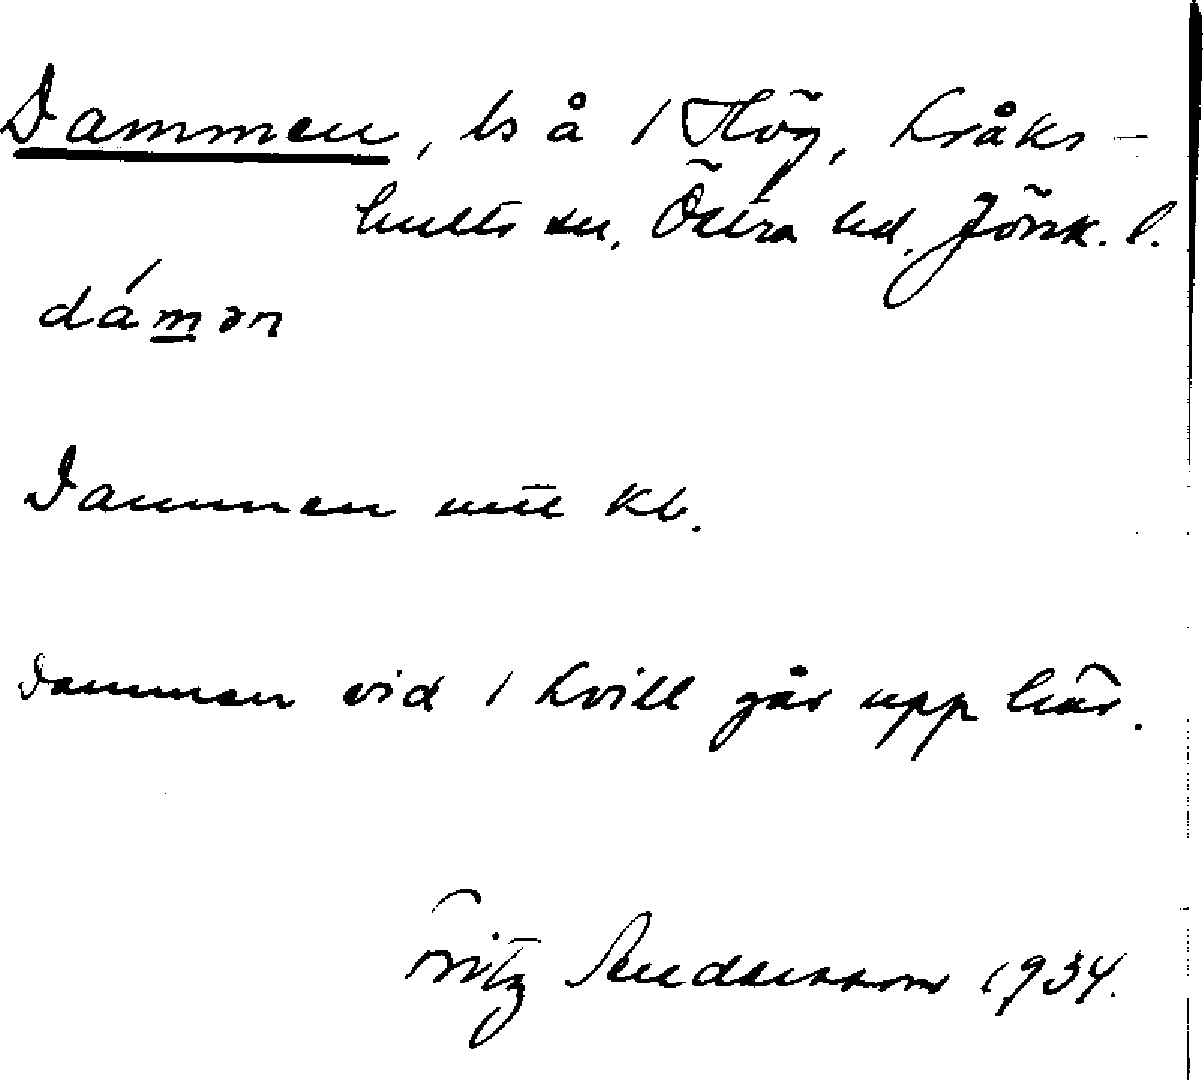 Dammen, ls å 1 Hög, Kråks-
hults sn, Östra hd. Jönk. l.
dámən
Dammen utt. kb.
Dammen vid 1 Kvill går upp här.
Fritz Andersson 1934.